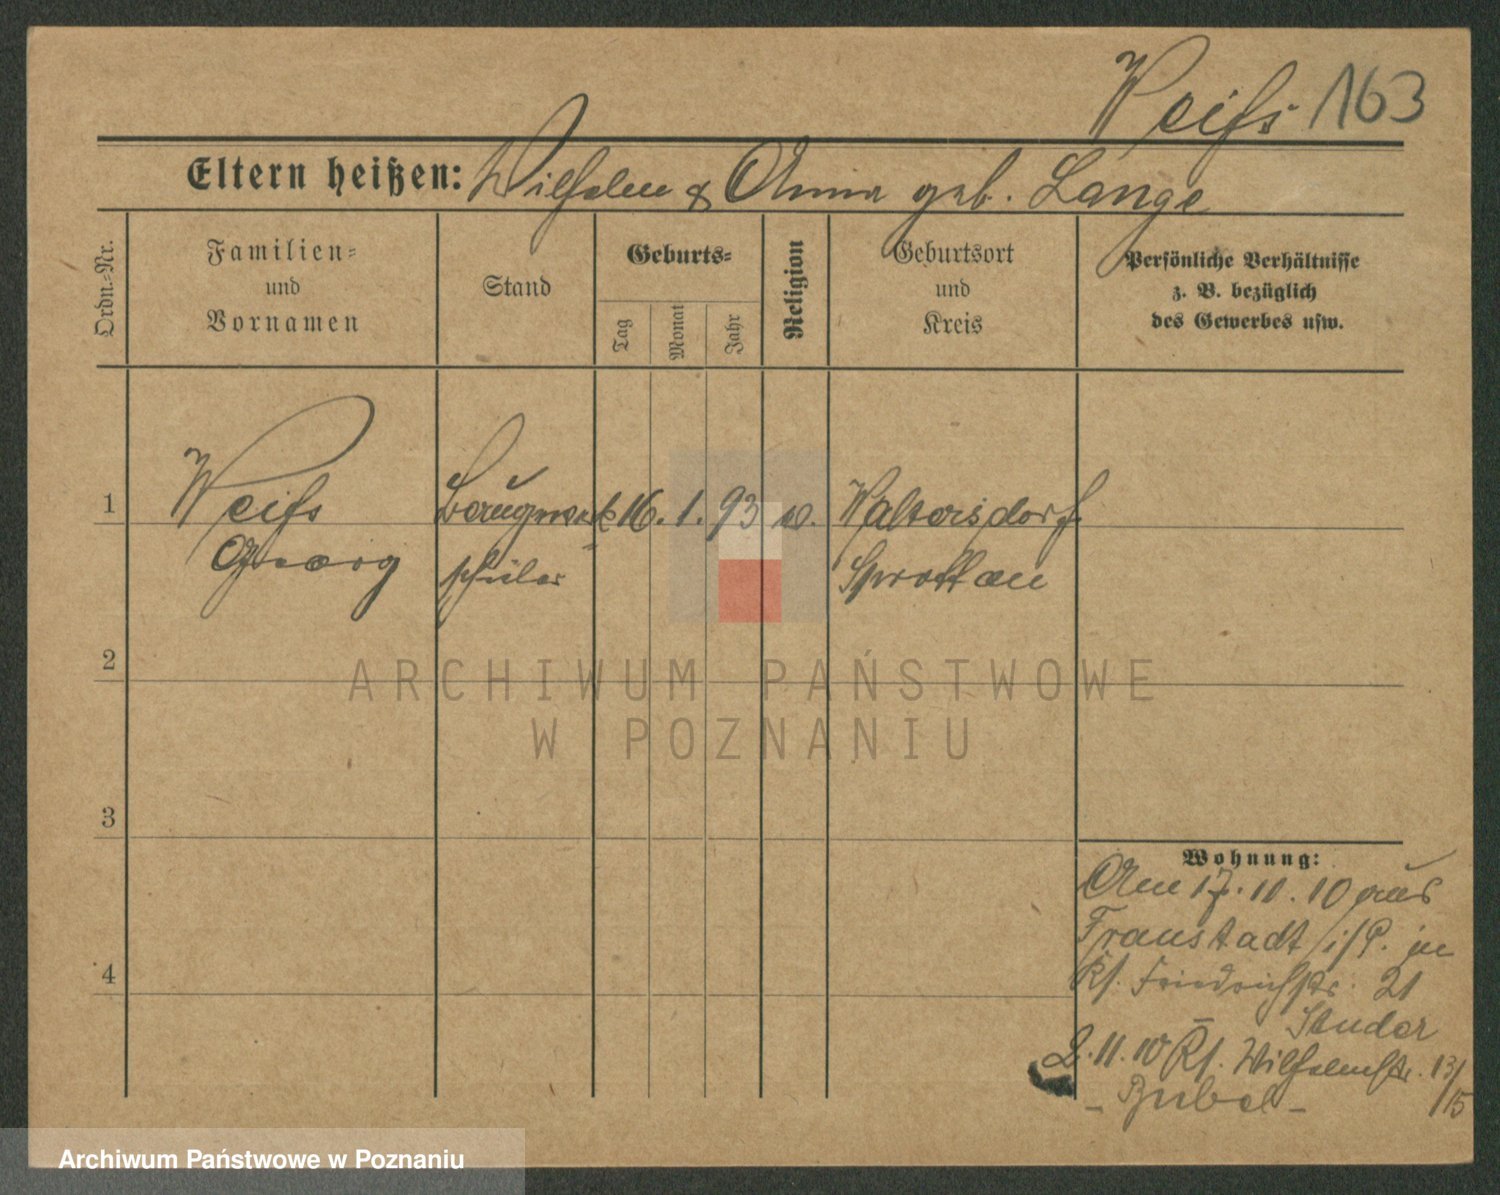 Weiß 163
Eltern heißen: Wilhelm & Anna geb. Lange
Ordn.-Nr.
Familien-
und
Vornamen
Stand
Geburts-
Tag
Monat
Jahr
Religion
Geburtsort
und
Kreis
Persönliche Verhältnisse
z. B. bezüglich
des Gewerbes usw.
1
Weiß
Georg
Baugewerk-
schüler
16. 1. 93
Waltersdorf
Sprottau
2
3
4
Wohnung:
Am 17. 11. 10 aus
Fraustadt i/P. in
Friedrichstr. 21
Studer
11. 10 Wilhelmstr. 13/15
ARCHIWUM PAŃSTWOWE
W POZNANIU
Archiwum Państwowe w Poznaniu